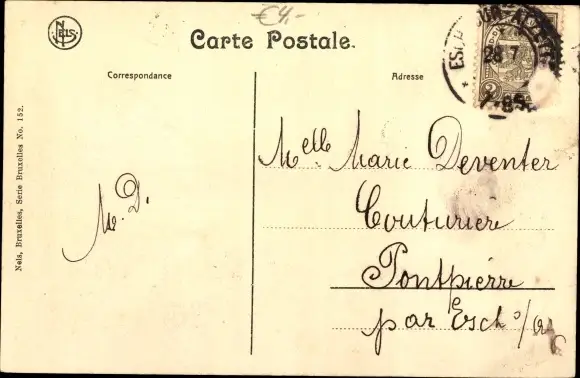 €4.-
NELS
Carte Postale.
Correspondance
Adresse
28 7
Nels, Bruxelles, Serie Bruxelles No. 152.
M. D.
Melle Marie Deventer
Couturière
Pontpierre
par Esch s/Alz